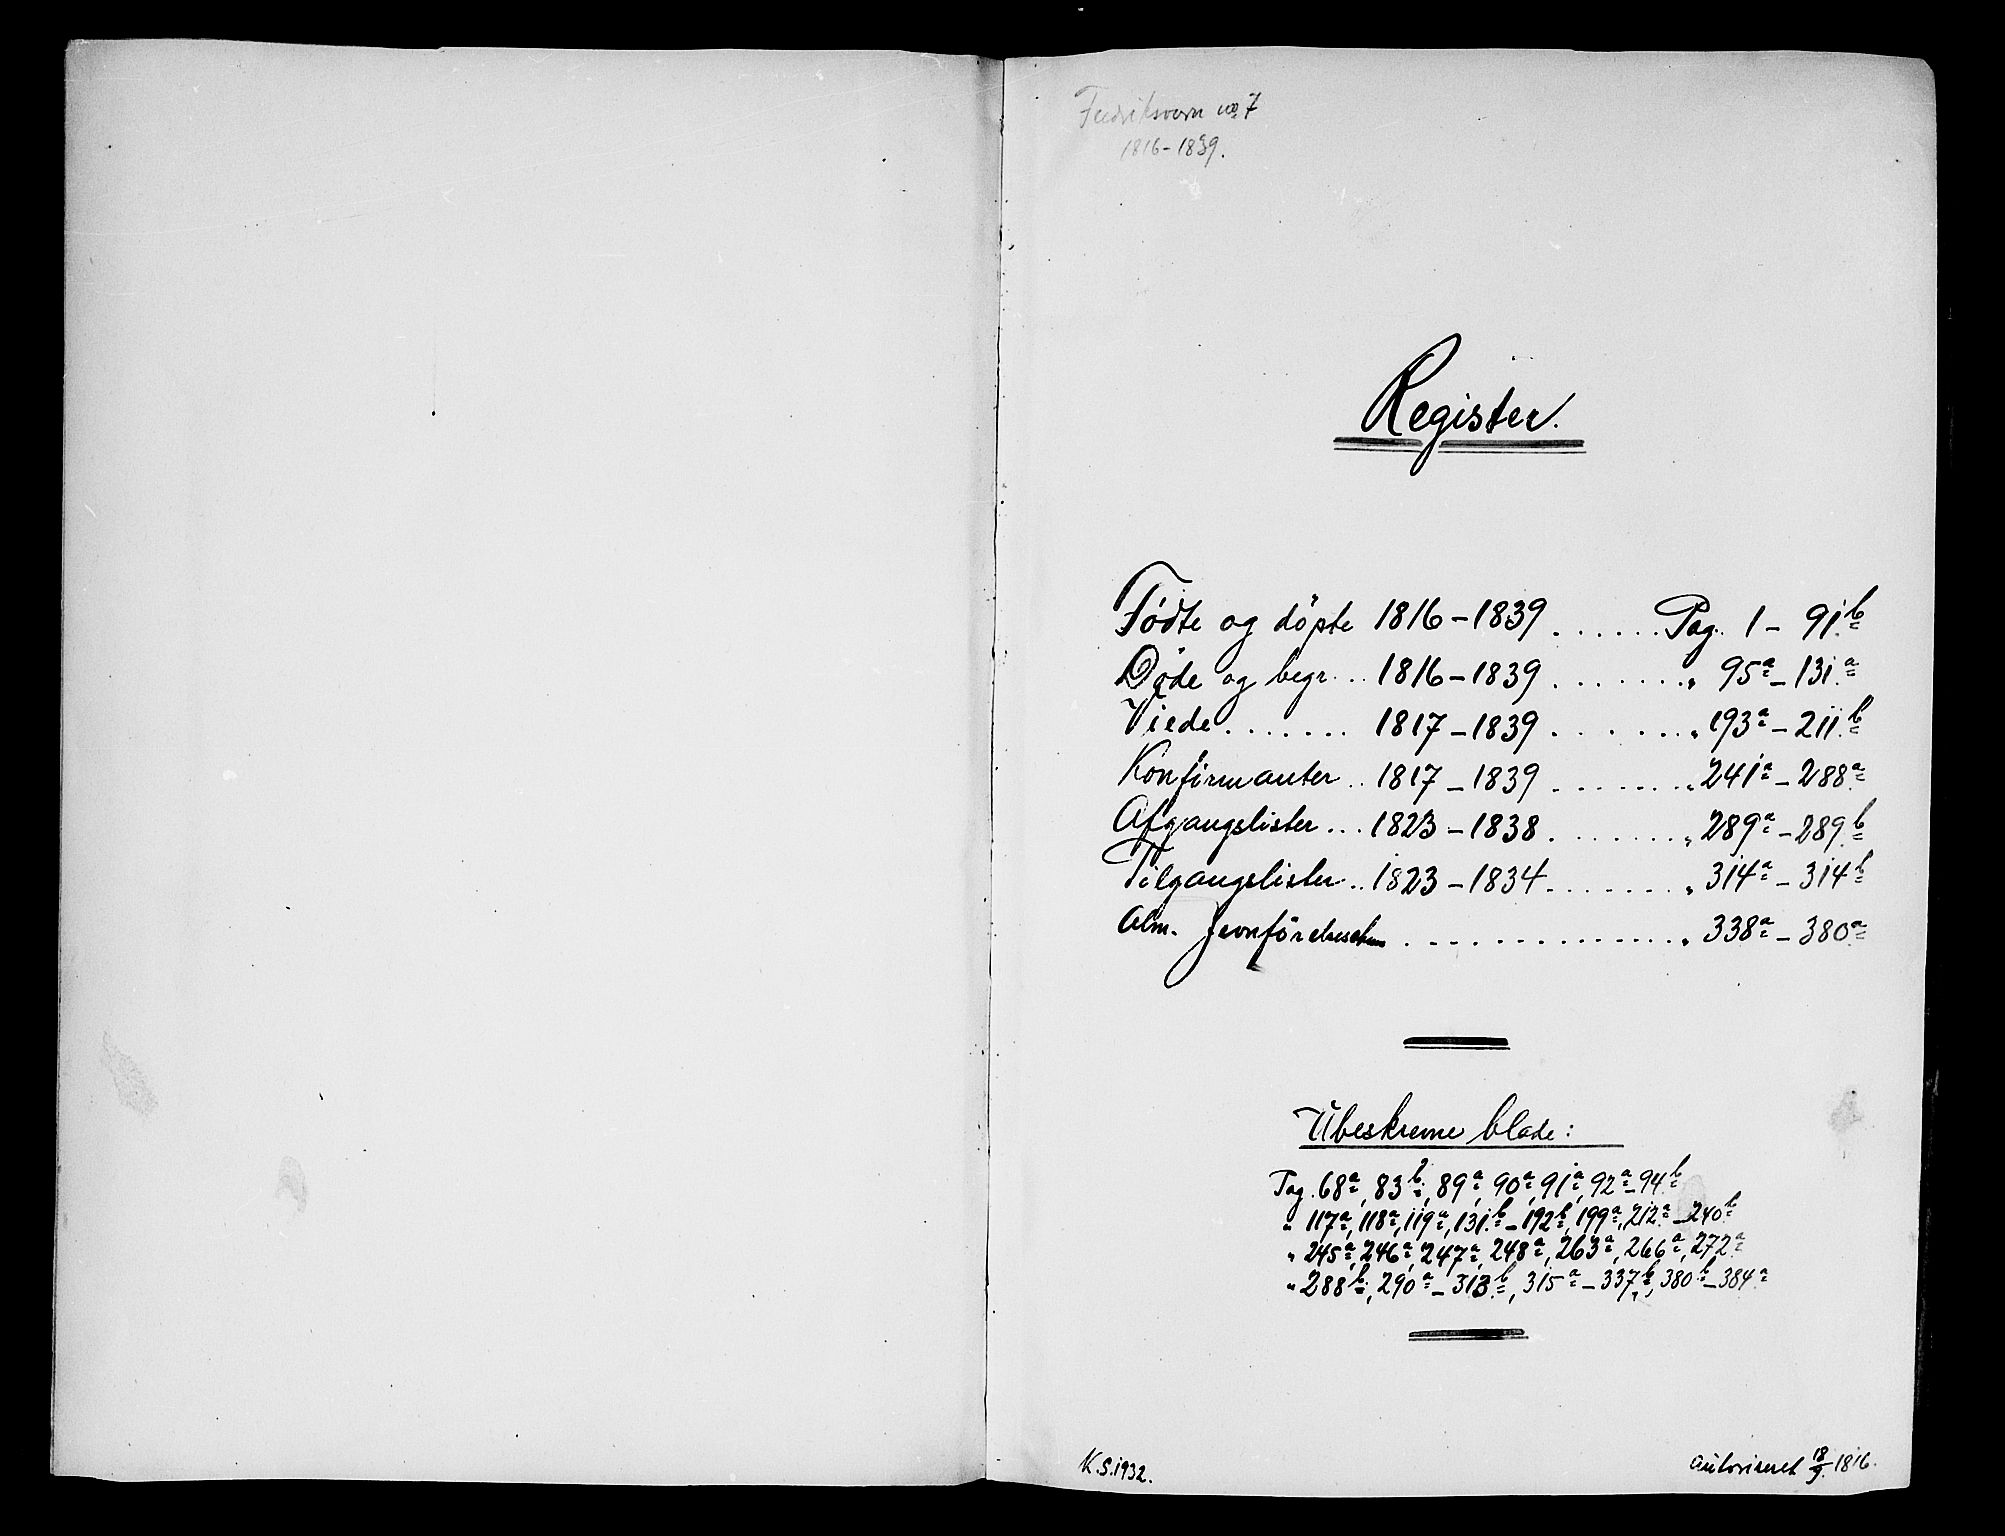 Fredriksvern no 7
1816-1839.
Register.
Födte og döpte 1816-1839 ...... Pag. 1 - 91b
Döde og begr. .. 1816-1839 ....... " 95a - 131a
Viede ....... 1817-1839 ....... " 193a - 211b
Konfirmanter .. 1817-1839 ....... " 241a - 288a
Afgangslister ... 1823-1838 ....... " 289a - 289b
Tilgangslister .. 1823-1834 ....... " 314a - 314b
Alm. Jevnförelse ............... " 338a - 380a
Ubeskrevne blade:
Pag. 68a, 83b, 89a, 90a, 91a, 92a - 94b
" 117a, 118a, 119a, 131b - 192b, 199a, 212a - 240b
" 245a, 246a, 247a, 248a, 263a, 266a, 272a
" 288b, 290a - 313b, 315a - 337b, 380b - 384a
K.S. 1932.
Autoriseret 18/9. 1816.